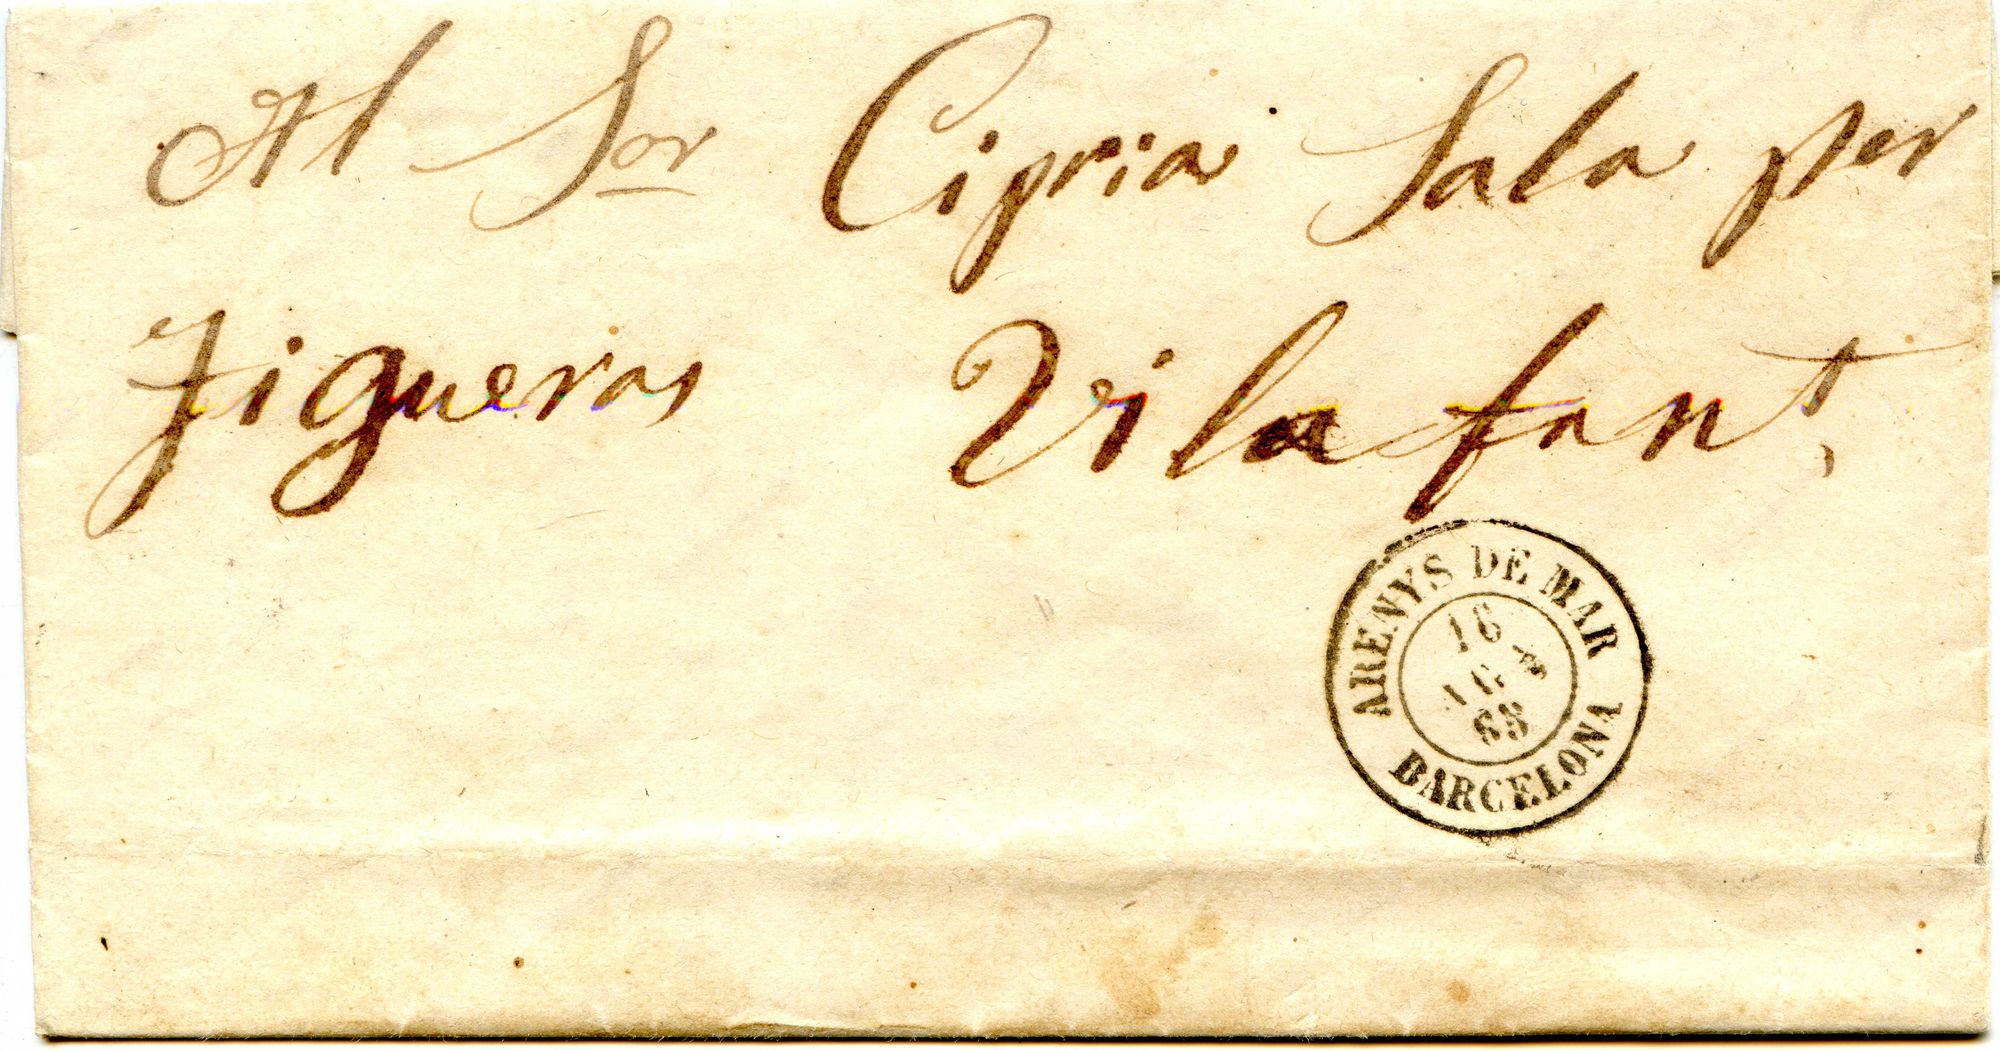 Al Sor Cipria Sala per
Figueras Vilafant,
ARENYS DE MAR
16
88
BARCELONA